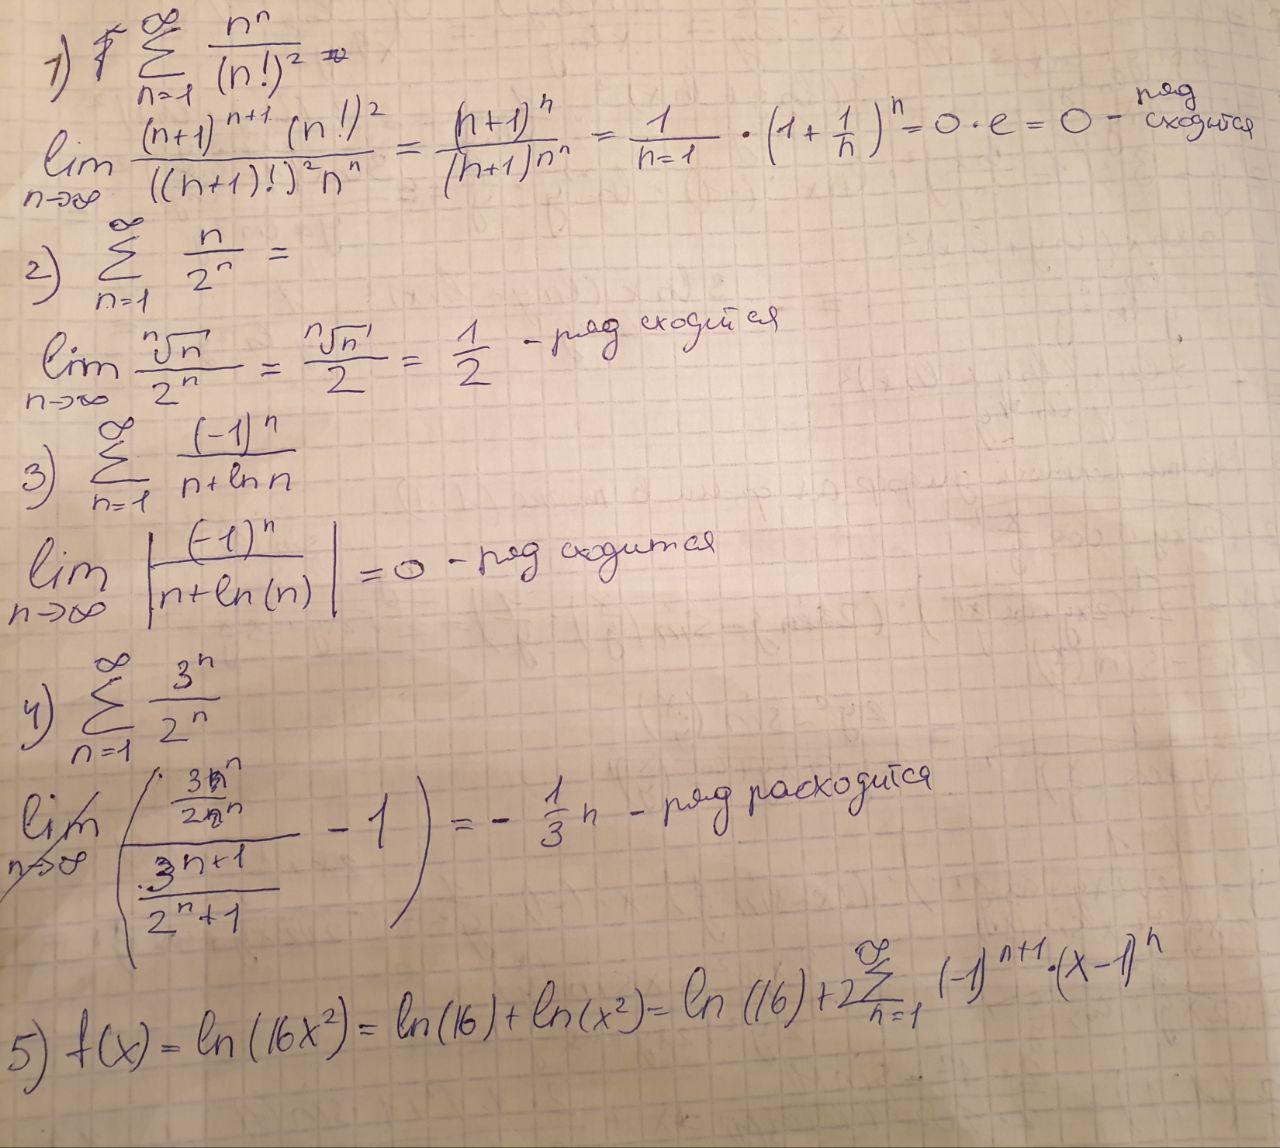 1) ∑_{n=1}^{∞} n^n / (n!)^2 =
lim_{n→∞} (n+1)^{n+1} (n!)^2 / ((n+1)!)^2 n^n = (n+1)^n / (n+1) n^n = 1 / n=1 · (1 + 1/n)^n = 0 · e = 0 - ряд сходится
2) ∑_{n=1}^{∞} n / 2^n =
lim_{n→∞} ⁿ√n / 2^n = ⁿ√n / 2 = 1/2 - ряд сходится
3) ∑_{n=1}^{∞} (-1)^n / n + ln n
lim_{n→∞} |(-1)^n / n + ln(n)| = 0 - ряд сходится
4) ∑_{n=1}^{∞} 3^n / 2^n
lim_{n→∞} ( (3^n / 2^n) / (3^{n+1} / 2^n+1) - 1 ) = - 1/3 n - ряд расходится
5) f(x) = ln(16x^2) = ln(16) + ln(x^2) = ln(16) + 2∑_{n=1}^{∞} (-1)^{n+1} · (x-1)^n